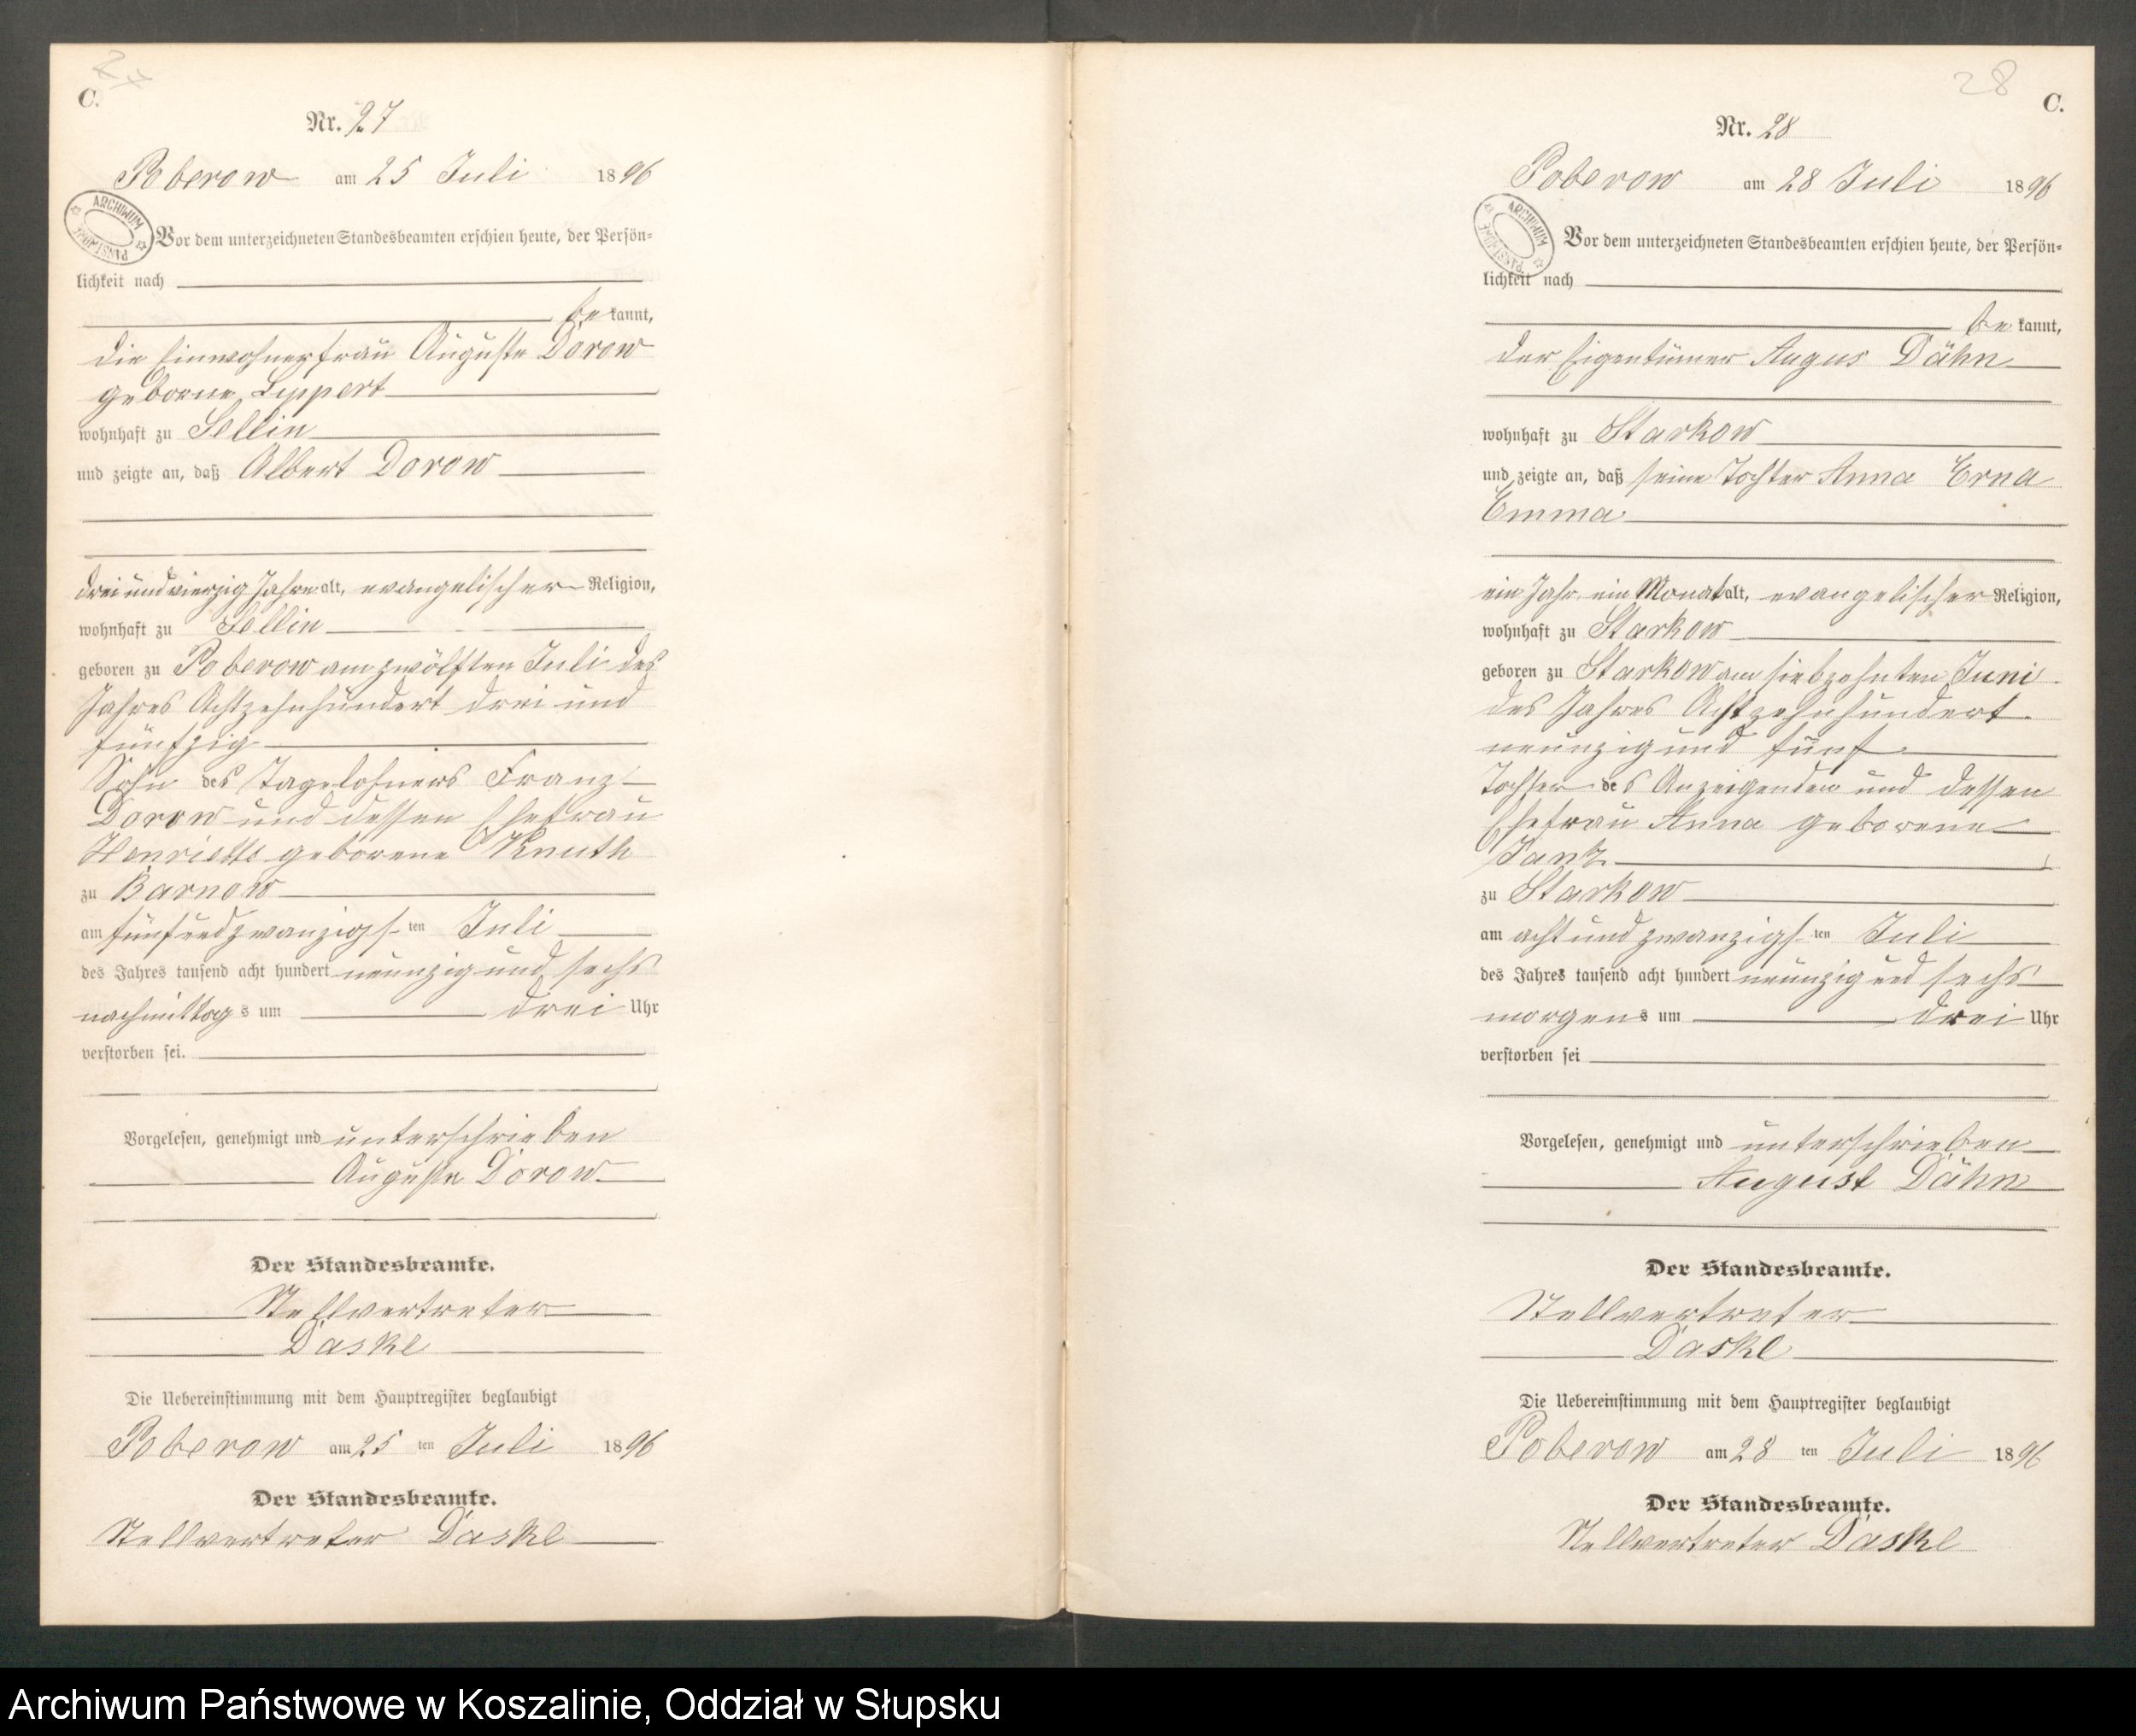 27
C.
Nr. 27
Poberow am 25 Juli 1896
ARCHIWUM PAŃSTWOWE
Vor dem unterzeichneten Standesbeamten erschien heute, der Persön-
lichkeit nach
be kannt,
die Einwohnerfrau Auguste Dorow
geborne Lippert
wohnhaft zu Sellin
und zeigte an, daß Albert Dorow
drei und vierzig Jahre alt, evangelischer Religion,
wohnhaft zu Sellin
geboren zu Poberow am zwölften Juli des
Jahres Achtzehnhundert drei und
fünfzig
Sohn des Tagelohners Franz
Dorow und dessen Ehefrau
Henriette geborene Knuth
zu Barnow
am fünfundzwanzigs ten Juli
des Jahres tausend acht hundert neunzig und sechs
nachmittags um drei Uhr
verstorben sei.
Vorgelesen, genehmigt und unterschrieben
Auguste Dorow
Der Standesbeamte.
Stellvertreter
Daske
Die Uebereinstimmung mit dem Hauptregister beglaubigt
Poberow am 25 ten Juli 1896
Der Standesbeamte.
Stellvertreter Daske
28
C.
Nr. 28
Poberow am 28 Juli 1896
ARCHIWUM PAŃSTWOWE
Vor dem unterzeichneten Standesbeamten erschien heute, der Persön-
lichkeit nach
be kannt,
der Eigentümer Augus Dähn
wohnhaft zu Starkow
und zeigte an, daß seine Tochter Anna Erna
Emma
ein Jahr ein Monat alt, evangelischer Religion,
wohnhaft zu Starkow
geboren zu Starkow am siebzehnten Juni
des Jahres Achtzehnhundert
neunzig und fünf
Tochter des Anzeigenden und dessen
Ehefrau Anna geborene
zu Starkow
am acht und zwanzigs ten Juli
des Jahres tausend acht hundert neunzig und sechs
morgens um drei Uhr
verstorben sei
Vorgelesen, genehmigt und unterschrieben
August Dähn
Der Standesbeamte.
Stellvertreter
Daske
Die Uebereinstimmung mit dem Hauptregister beglaubigt
Poberow am 28 ten Juli 1896
Der Standesbeamte.
Stellvertreter Daske
Archiwum Państwowe w Koszalinie, Oddział w Słupsku